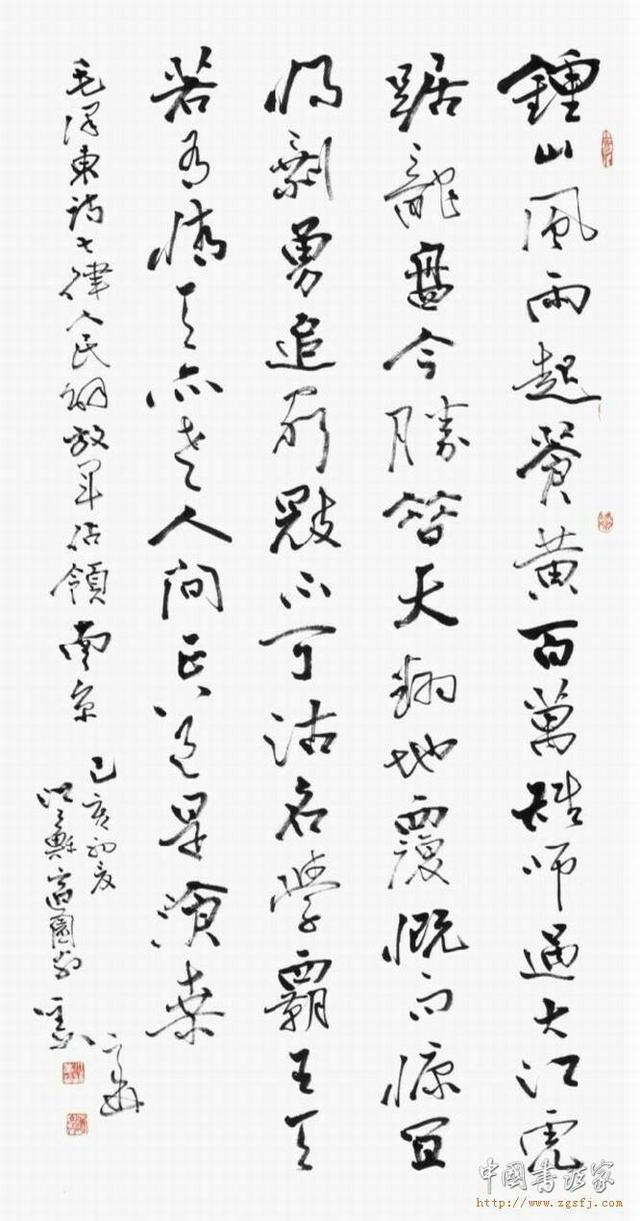 鍾山風雨起蒼黃百萬雄師過大江虎
踞龍盤今勝昔天翻地覆慨而慷宜
將剩勇追窮寇不可沽名學霸王天
若有情天亦老人間正道是滄桑
毛澤東詩七律人民解放軍佔領南京
己亥初夏
中國書法家
http://www.zgsfj.com